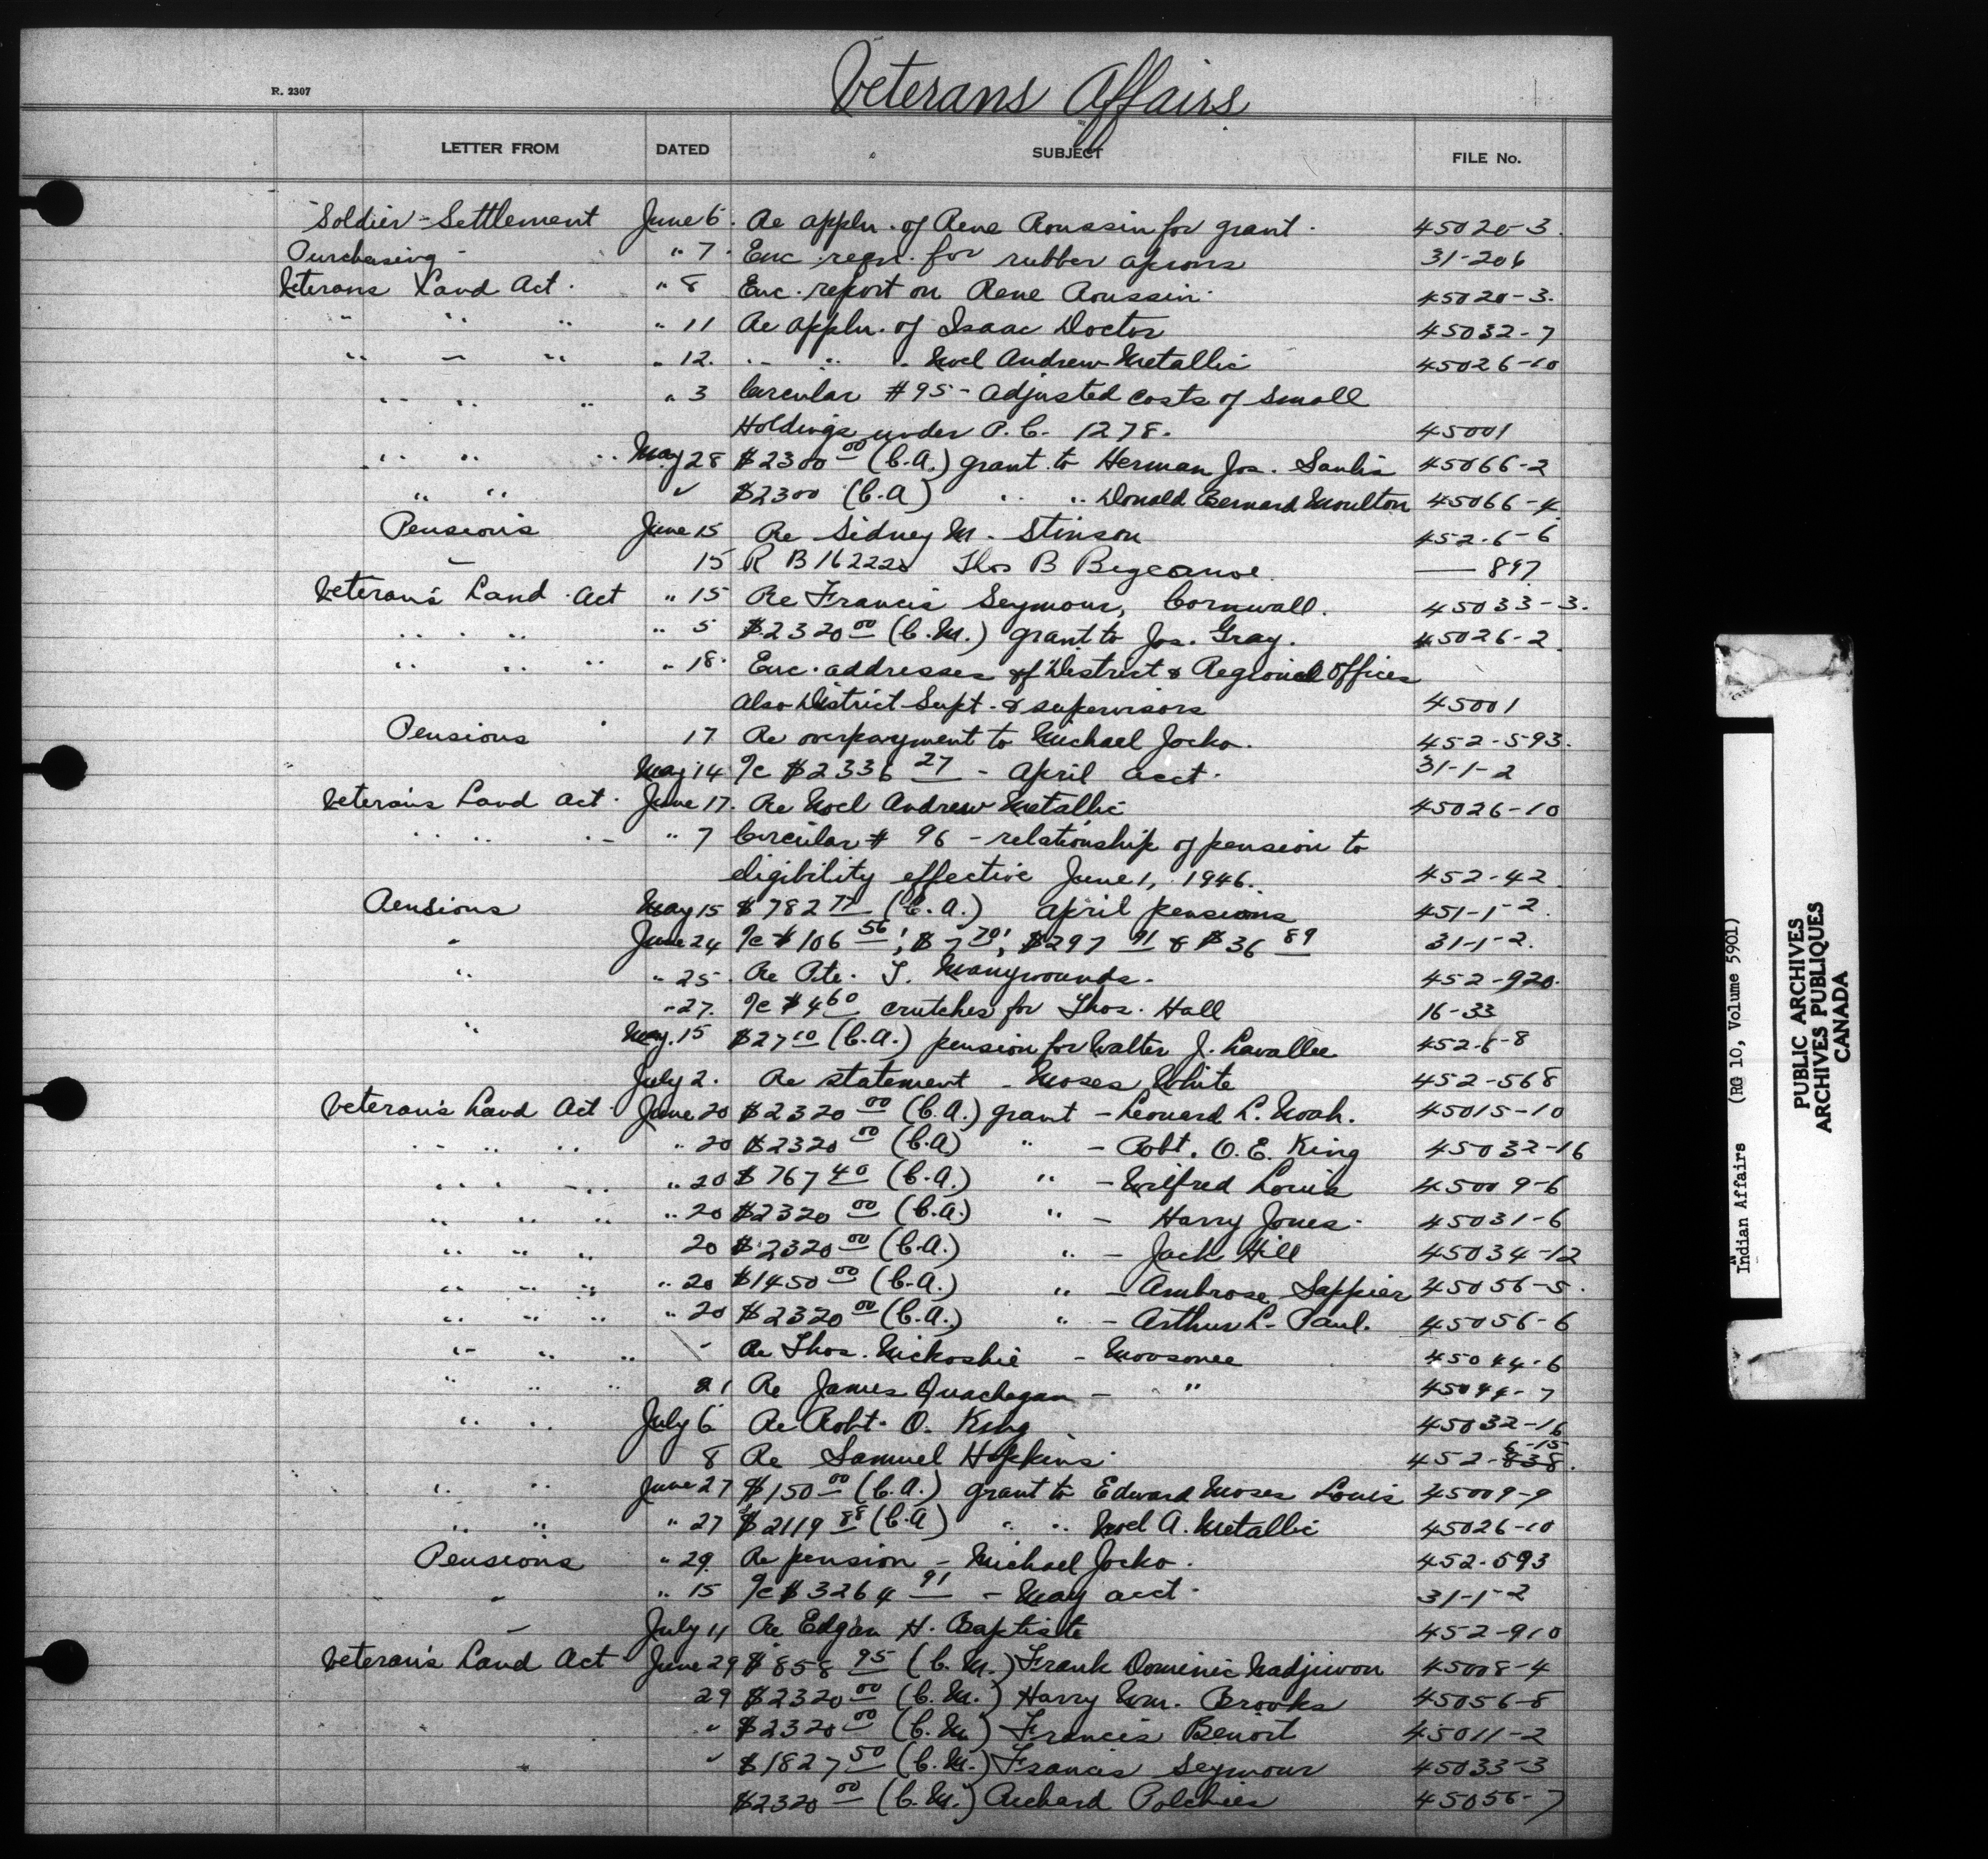 Veterans Affairs
R. 2307
LETTER FROM DATED SUBJECT FILE No.
Soldier-Settlement June 6. Re appln. of Rene Roussin for grant. 45020-3.
Purchasing - " 7. Enc. reqn. for rubber aprons 31-206
Veterans Land Act. " 8 Enc. report on Rene Roussin. 45020-3.
" " " " 11 Re appln. of Isaac Doctor 45032-7
" " " " 12. " " " Noel Andrew Metallic 45026-10
" " " " 3 Circular #95 - Adjusted costs of Small
Holdings under P.C. 1278. 45001
" " " May 28 $2300 00 (C.A.) grant to Herman Jos. Saulis 45066-2
" " " $2300 (C.A) " " Donald Bernard Moulton 45066-4
Pensions June 15 Re Sidney M. Stinson 452-6-6
" 15 R B 162220 Thos B — 897
Veteran's Land Act " 15 Re Francis Seymour, Cornwall. 45033-3.
" " " " 5 $2320 00 (C.M.) grant to Jos. Gray. 45026-2.
" " " " 18. Enc. addresses of District & Regional Offices
also District Supt. & supervisors 45001
Pensions 17 Re overpayment to Michael Jocko. 452-593.
May 14 I/c $2336 27 - April acct. 31-1-2
Veterans Land Act. June 17. Re Noel Andrew Metallic 45026-10
" " " " 7 Circular # 96 - relationship of pension to
eligibility effective June 1, 1946. 452-42.
Pensions May 15 $782 (C.A.) April pensions 451-1-2.
" June 24 I/c $106 56, $7 70, $297 91 & $36 89 31-1-2.
" " 25. Re Pte. T. Manywounds. 452-920.
" 27. I/c $4 60 crutches for Thos. Hall 16-33
" May. 15 $27 10 (C.A.) pension for Walter J. Lavallee 452-6-8
July 2. Re statement - Moses White 452-568
Veteran's Land Act. June 20 $2320 00 (C.A.) grant - Leonard L. Noah. 45015-10
" " " " 20 $2320 00 (C.A) " - Robt. O. E. King 45032-16
" " " " 20 $767 40 (C.A.) " - Wilfred Louis 45009-6
" " " " 20 $2320 00 (C.A.) " - Harry Jones. 45031-6
" " " 20 $2320 00 (C.A.) " - Jack Hill 45034-12
" " " " 20 $1450 00 (C.A.) " - Ambrose Sappier 45056-5.
" " " " 20 $2320 00 (C.A.) " - Arthur L. Paul. 45056-6
" " " " Re Thos. Mickoshie - Moosonee 45044-6
" " " 21 Re James Quachegan - " 45044-7
" " July 6 Re Robt. O. King 45032-16
8 Re Samuel Hopkins. 452-838. 6-15
" " June 27 $150 00 (C.A.) grant to Edward Moses Louis 45009-9
" " " 27 $2119 88 (C.A) " " Noel A. Metallic 45026-10
Pensions " 29. Re pension - Michael Jocko. 452-593
" " 15 I/c $3264 91 - May acct. 31-1-2
" July 11 Re Edgar H. Baptiste 452-910
Veteran's Land Act June 29 $858 95 (C.M.) Frank Dominic Nadjiwon 45008-4
29 $2320 00 (C.M.) Harry Wm. Brooks 45056-8
" $2320 00 (C.M.) Francis Benoit 45011-2
" " $1827 50 (C.M.) Francis Seymour 45033-3
$2320 00 (C.M.) Richard Polchies 45056-7
Indian Affairs (RG 10, Volume 5901)
PUBLIC ARCHIVES
ARCHIVES PUBLIQUES
CANADA